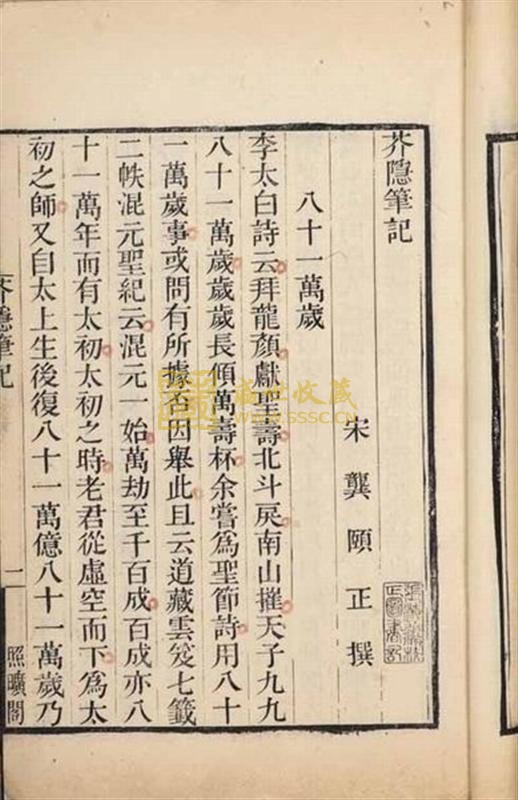 芥隱筆記
宋龔頤正撰
八十一萬歲
李太白詩云拜龍顏獻聖壽北斗戾南山摧天子九九
八十一萬歲歲歲長傾萬壽杯余嘗爲聖節詩用八十
一萬歲事或問有所據否因舉此且云道藏雲笈七籤
二帙混元聖紀云混元一始萬劫至千百成百成亦八
十一萬年而有太初太初之時老君從虛空而下爲太
初之師又自太上生後復八十一萬億八十一萬歲乃
芥隱筆記
一
照曠閣
盛世收藏
WWW.SSSC.CN